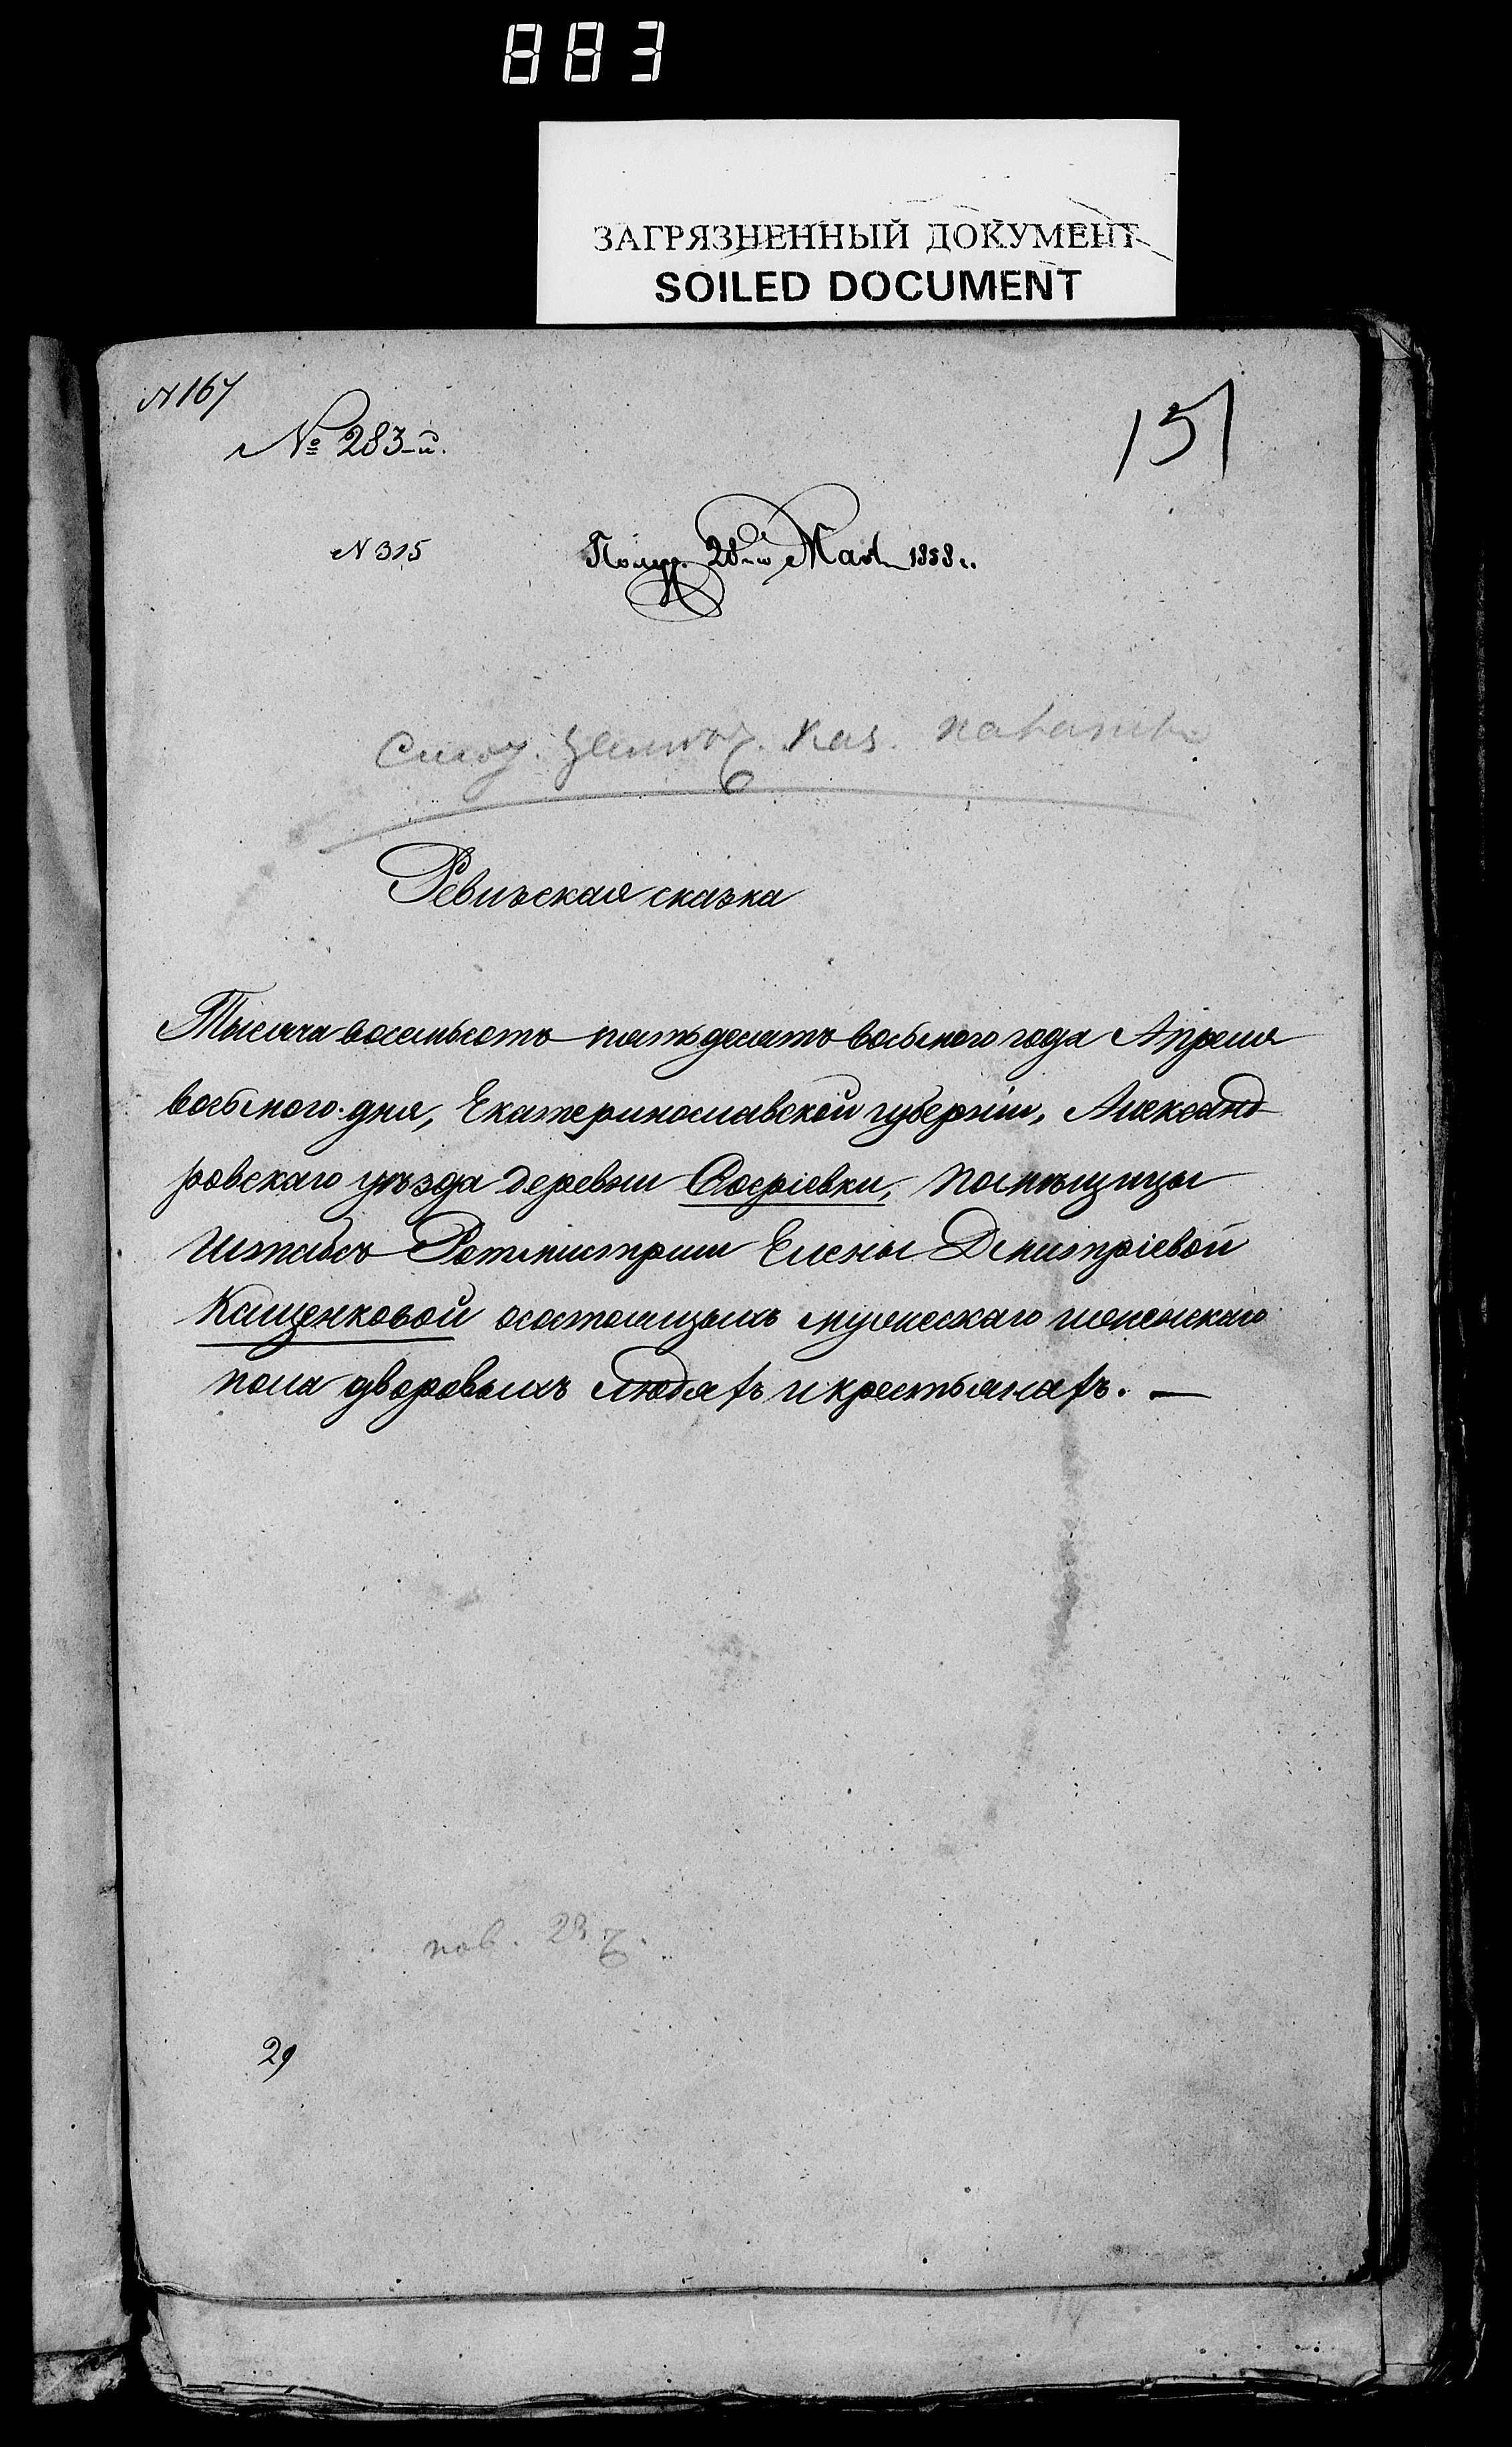 883
ЗАГРЯЗНЕННЫЙ ДОКУМЕНТ
SOILED DOCUMENT
N 167
№ 283-й.
151
N 315
Получ. 28-го Мая 1858 г.
Каз.
Ревизская сказка
Тысяча восемьсотъ пятьдесятъ восьмого года Апреля
восьмого дня, Екатеринославской губернiи, Александ
ровскаго уѣзда деревни, помѣщицы
Штабсъ Ротмистрши Елены Дмитрiевой
Кащенковой осостоящихъ мужескаго иженскаго
пола дворовыхъ людяхъ и крестьянахъ. —
пов. 23
29